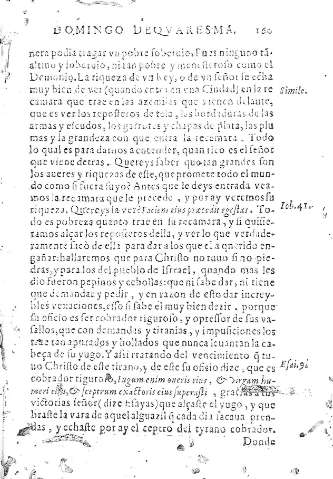 DOMINGO DEQVARESMA. 160
nera podia tragar vn pobre soberuio, Pues ninguno tã
altiuo y soberuio, ni tan pobre y menesteroso como el
Demonio. La riqueza de vn Rey, o de vn señor se echa
muy bien de ver (quando entra en vna Ciudad) en la re
camara que trae en las azemilas que atienen delante,
que es ver los reposteros de tela, las bordaduras de las
armas y escudos, los garrotes y chapas de plata, las plu
mas y la grandeza con que entra la recamara. Todo
lo qual es para darnos a entender, quan rico es el señor
que viene detras. Quereys saber quan grandes son
los aueres y riquezas de este, que promete todo el mun
do como si fuera suyo? Antes que le deys entrada vea
mos la recamara que le precede, y por ay veremos su
riqueza. Quereys la ver? Faciem eius præcedit egestas. To-
do es pobreza quanto trae en su recamara, y si quisie
ramos alçar los reposteros della, y ver lo que verdade
ramente sacò de ella para dar a los que el a querido en
gañar: hallaremos que para Christo no tuuo sino pie
dras, y para los del pueblo de Israel, quando mas les
dio fueron pepinos y cebollas: que ni sabe dar, ni tiene
que demandar y pedir, y en razon de esto dar increy-
bles vexaciones, esso si sabe el muy bien dezir. porque
su oficio es ser cobrador riguroso, y opressor de sus va-
sallos, que con demandas y tiranias, y impusiciones los
trae tan apurados y hollados que nunca leuantan la ca
beça de su yugo. Y assi tratando del vencimiento q̃ tu
uo Christo de este tirano, y de este su oficio dize, que es
cobrador riguroso, Iugum enim oneris eius, & virgam hu-
meri eius, & sceptrum exactoris eius superasti, gracias a tus
victorias señor (dize Esayas) que alçaste el yugo, y que
braste la vara de aquel alguazil q̃ cada dia sacaua pren-
das, y echaste por ay el ceptro del tyrano cobrador.
Donde
Simile.
Iob. 41.
Esai. 9.